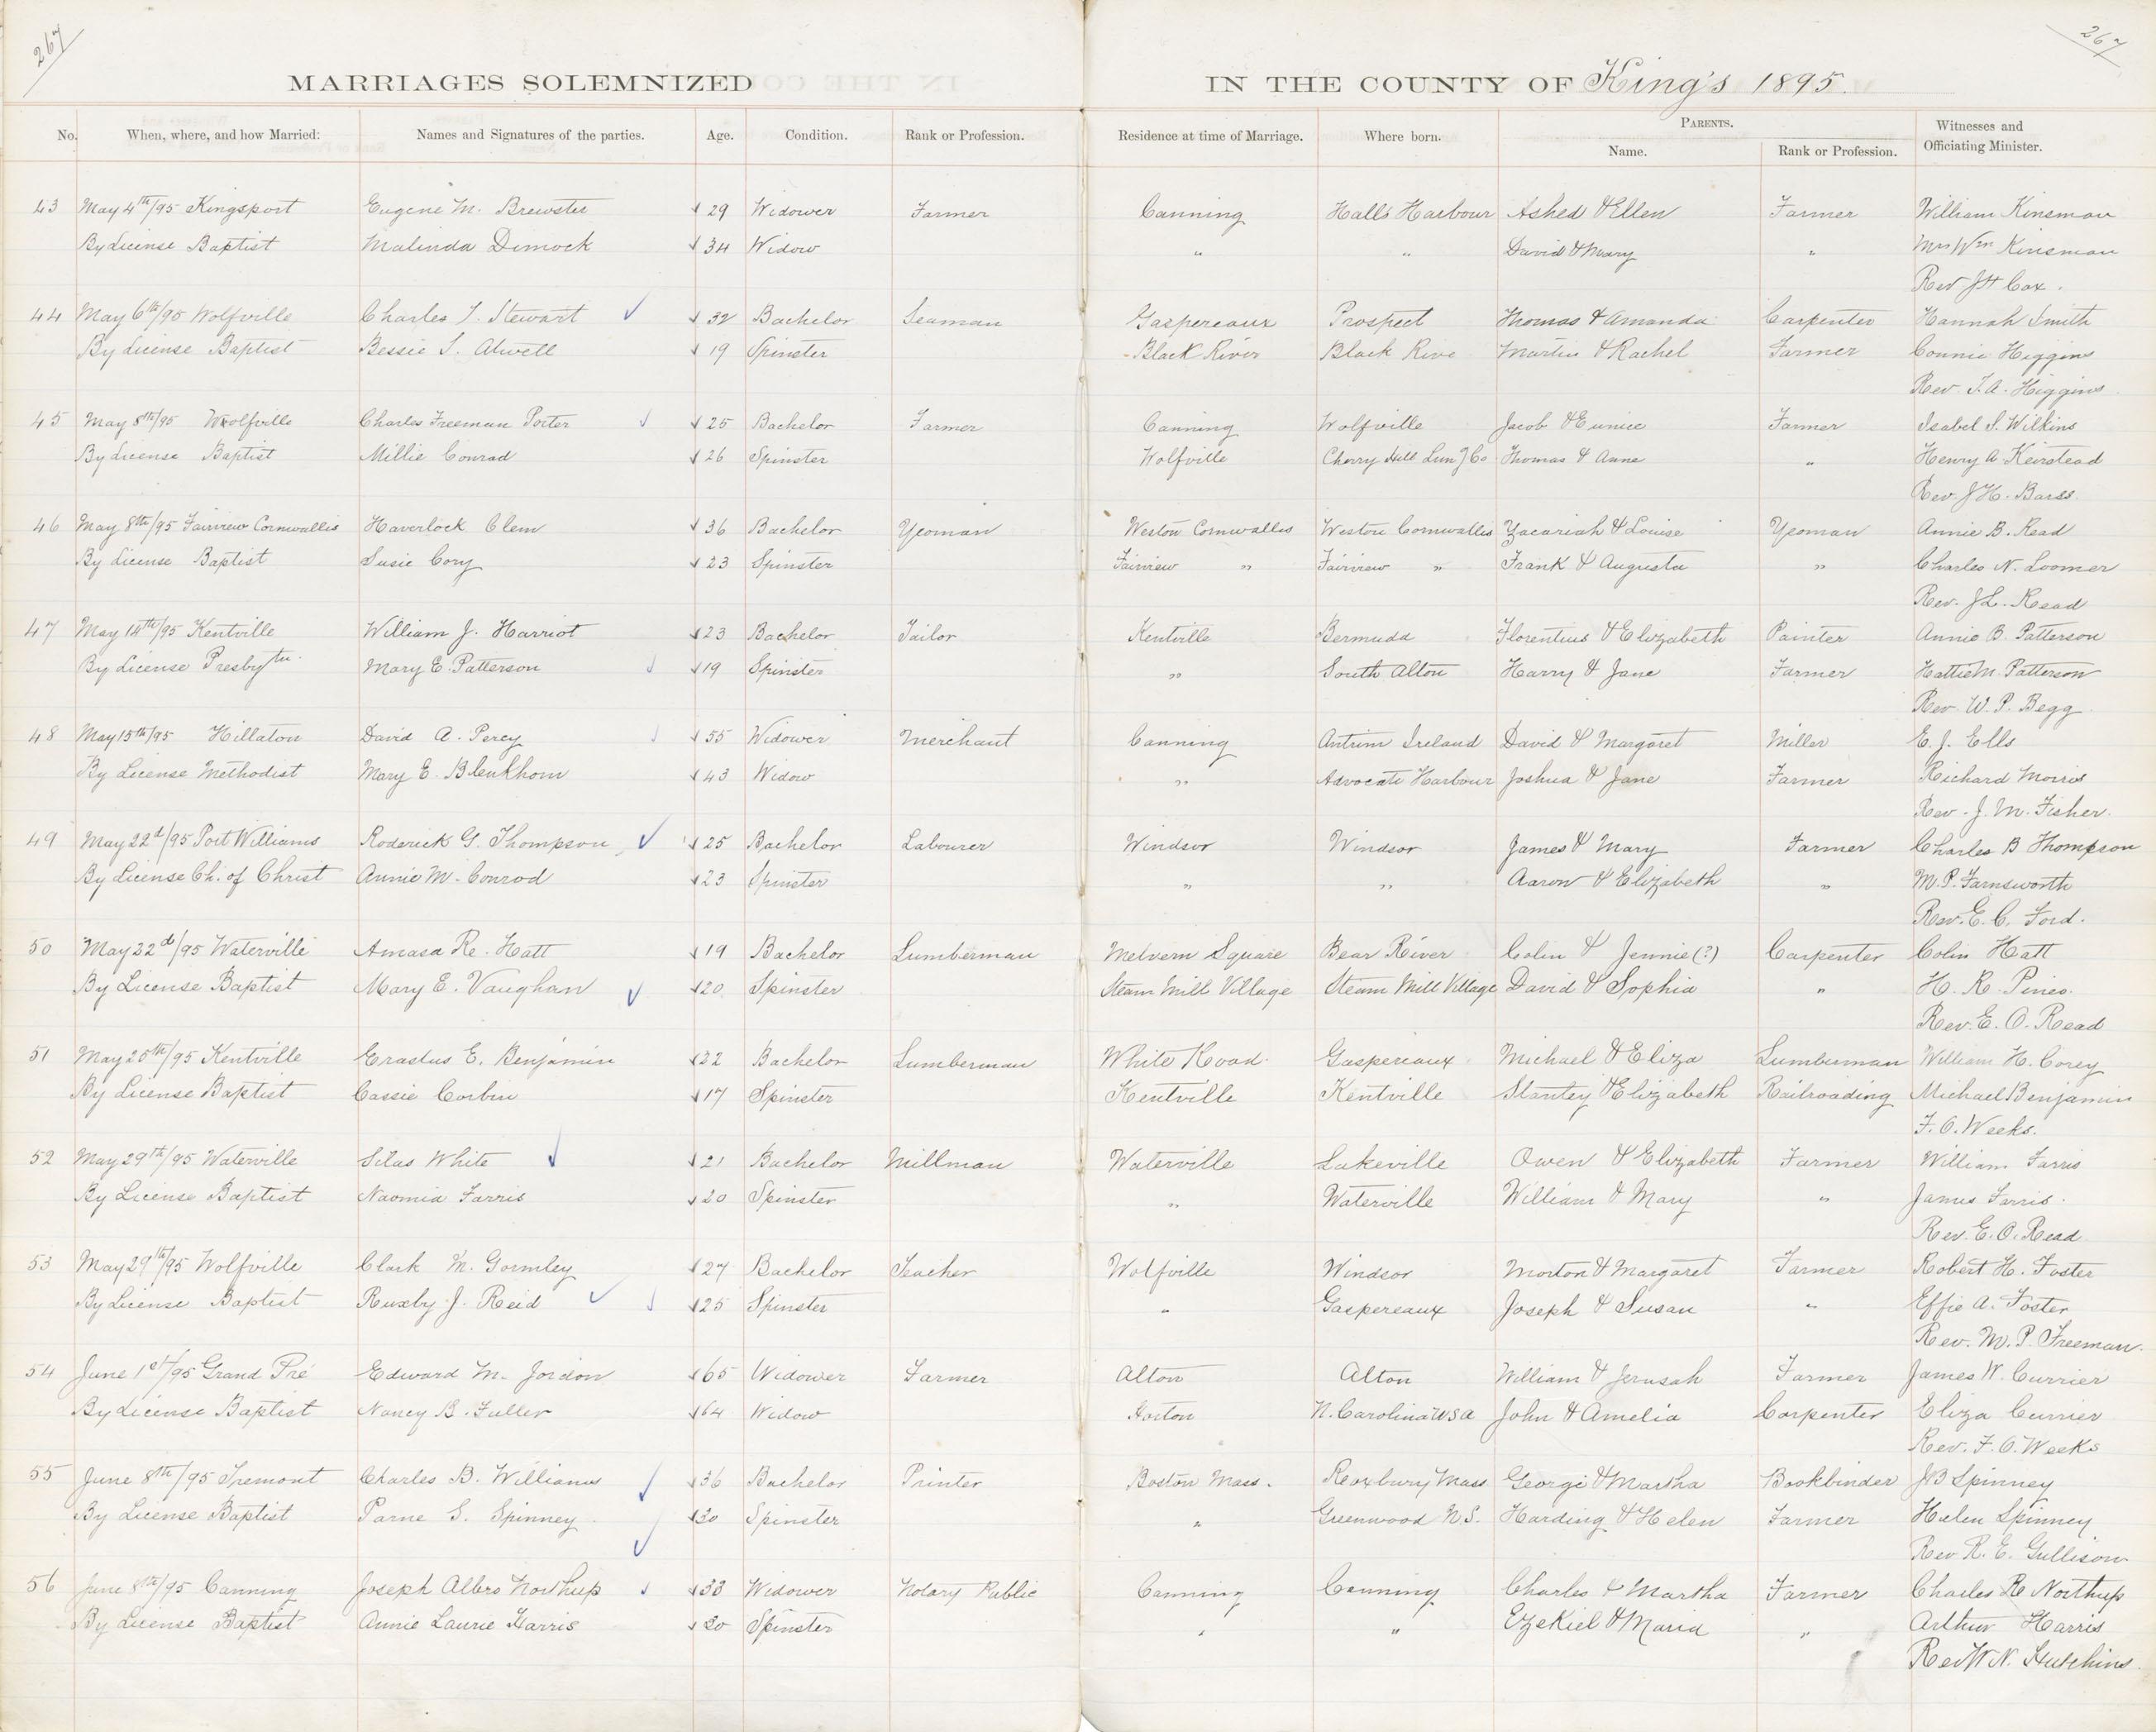 267
267
MARRIAGES SOLEMNIZED IN THE COUNTY OF King's 1895.
No. When, where, and how Married: Names and Signatures of the parties. Age. Condition. Rank or Profession. Residence at time of Marriage. Where born. PARENTS. Name. Rank or Profession. Witnesses and Officiating Minister.
43 May 4th/95 Kingsport Eugene M. Brewster 29 Widower Farmer Canning Halls Harbour Ashed & Ellen Farmer William Kinsman
By License Baptist Malinda Dimock 34 Widow " " David & Mary " Mrs Wm Kinsman
Rev J H Cox.
44 May 6th/95 Wolfville Charles T. Stewart 32 Bachelor Seaman Gaspereaux Prospect Thomas & Amanda Carpenter Hannah Smith
By License Baptist Bessie S. Atwell 19 Spinster Black River Black Rive Martin & Rachel Farmer Connie Higgins
Rev. T. A. Higgins.
45 May 8th/95 Wolfville Charles Freeman Porter 25 Bachelor Farmer Canning Wolfville Jacob & Eunice Farmer Isabel S. Wilkins
By License Baptist Millie Conrad 26 Spinster Wolfville Cherry Hill Lung Co Thomas & Anne " Henry A. Keirstead
Rev. J H. Barss.
46 May 8th/95 Fairview Cornwallis Haverlock Clem 36 Bachelor Yeoman Weston Cornwallis Weston Cornwallis Zacariah & Louise Yeoman Annie B. Read
By License Baptist Susie Cory 23 Spinster Fairview " Fairview " Frank & Augusta " Charles N. Loomer
Rev. J L. Read
47 May 14th/95 Kentville William J. Harriot 23 Bachelor Tailor Kentville Bermuda Florentius & Elizabeth Painter Annie B. Patterson
By License Presbytn. Mary E. Patterson 19 Spinster " South Alton Harry & Jane Farmer Hattie M. Patterson
Rev. W. P. Begg.
48 May 15th/95 Hillaton David A. Percy 55 Widower Merchant Canning Antrim Ireland David & Margaret Miller E. J. Ells
By License Methodist Mary E. Blenkhorn 43 Widow " Advocate Harbour Joshua & Jane Farmer Richard Morris
Rev. J. M. Fisher.
49 May 22d/95 Port Williams Roderick G. Thompson 25 Bachelor Labourer Windsor Windsor James & Mary Farmer Charles B Thompson
By License Ch. of Christ Annie M. Conrod 23 Spinster " " Aaron & Elizabeth " M. P. Farnsworth
Rev. E. C. Ford.
50 May 22d/95 Waterville Amasa Re. Hatt 19 Bachelor Lumberman Melvern Square Bear River Colin & Jennie (?) Carpenter Colin Hatt
By License Baptist Mary E. Vaughan 20 Spinster Steam Mill Village Steam Mill Village David & Sophia " H. R. Pineo.
Rev. E. O. Read
51 May 25th/95 Kentville Erastus E. Benjamin 22 Bachelor Lumberman White Road. Gaspereaux Michael & Eliza Lumberman William H. Corey
By License Baptist Cassie Corbin 17 Spinster Kentville Kentville Stanley & Elizabeth Railroading Michael Benjamin
F. O. Weeks.
52 May 29th/95 Waterville Silas White 21 Bachelor Millman Waterville Lakeville Owen & Elizabeth Farmer William Farris
By License Baptist Naomia Farris 20 Spinster " Waterville William & Mary " James Farris.
Rev. E. O. Read
53 May 29th/95 Wolfville Clark M. Gormley 27 Bachelor Teacher Wolfville Windsor Morton & Margaret Farmer Robert H. Foster
By License Baptist Ruxby J. Reid 25 Spinster " Gaspereaux Joseph & Susan " Effie A. Foster
Rev. M. P. Freeman.
54 June 1st/95 Grand Pré Edward M. Jordon 65 Widower Farmer Alton Alton William & Jerusah Farmer James W. Currier
By License Baptist Nancy B. Fuller 64 Widow Horton N. Carolina USA John & Amelia Carpenter Eliza Currier
Rev. F. O. Weeks
55 June 8th/95 Tremont Charles B. Williams 36 Bachelor Printer Boston Mass. Roxbury Mass George & Martha Bookbinder J B Spinney
By License Baptist Parne S. Spinney 30 Spinster " Greenwood N.S. Harding & Helen Farmer Helen Spinney
Rev R. E. Gullison
56 June 8th/95 Canning Joseph Albro Northup 33 Widower Notary Public Canning Canning Charles & Martha Farmer Charles Re Northup
By License Baptist Annie Laurie Harris 20 Spinster " " Ezekiel & Maria " Arthur Harris
Rev W N. Hutchins.